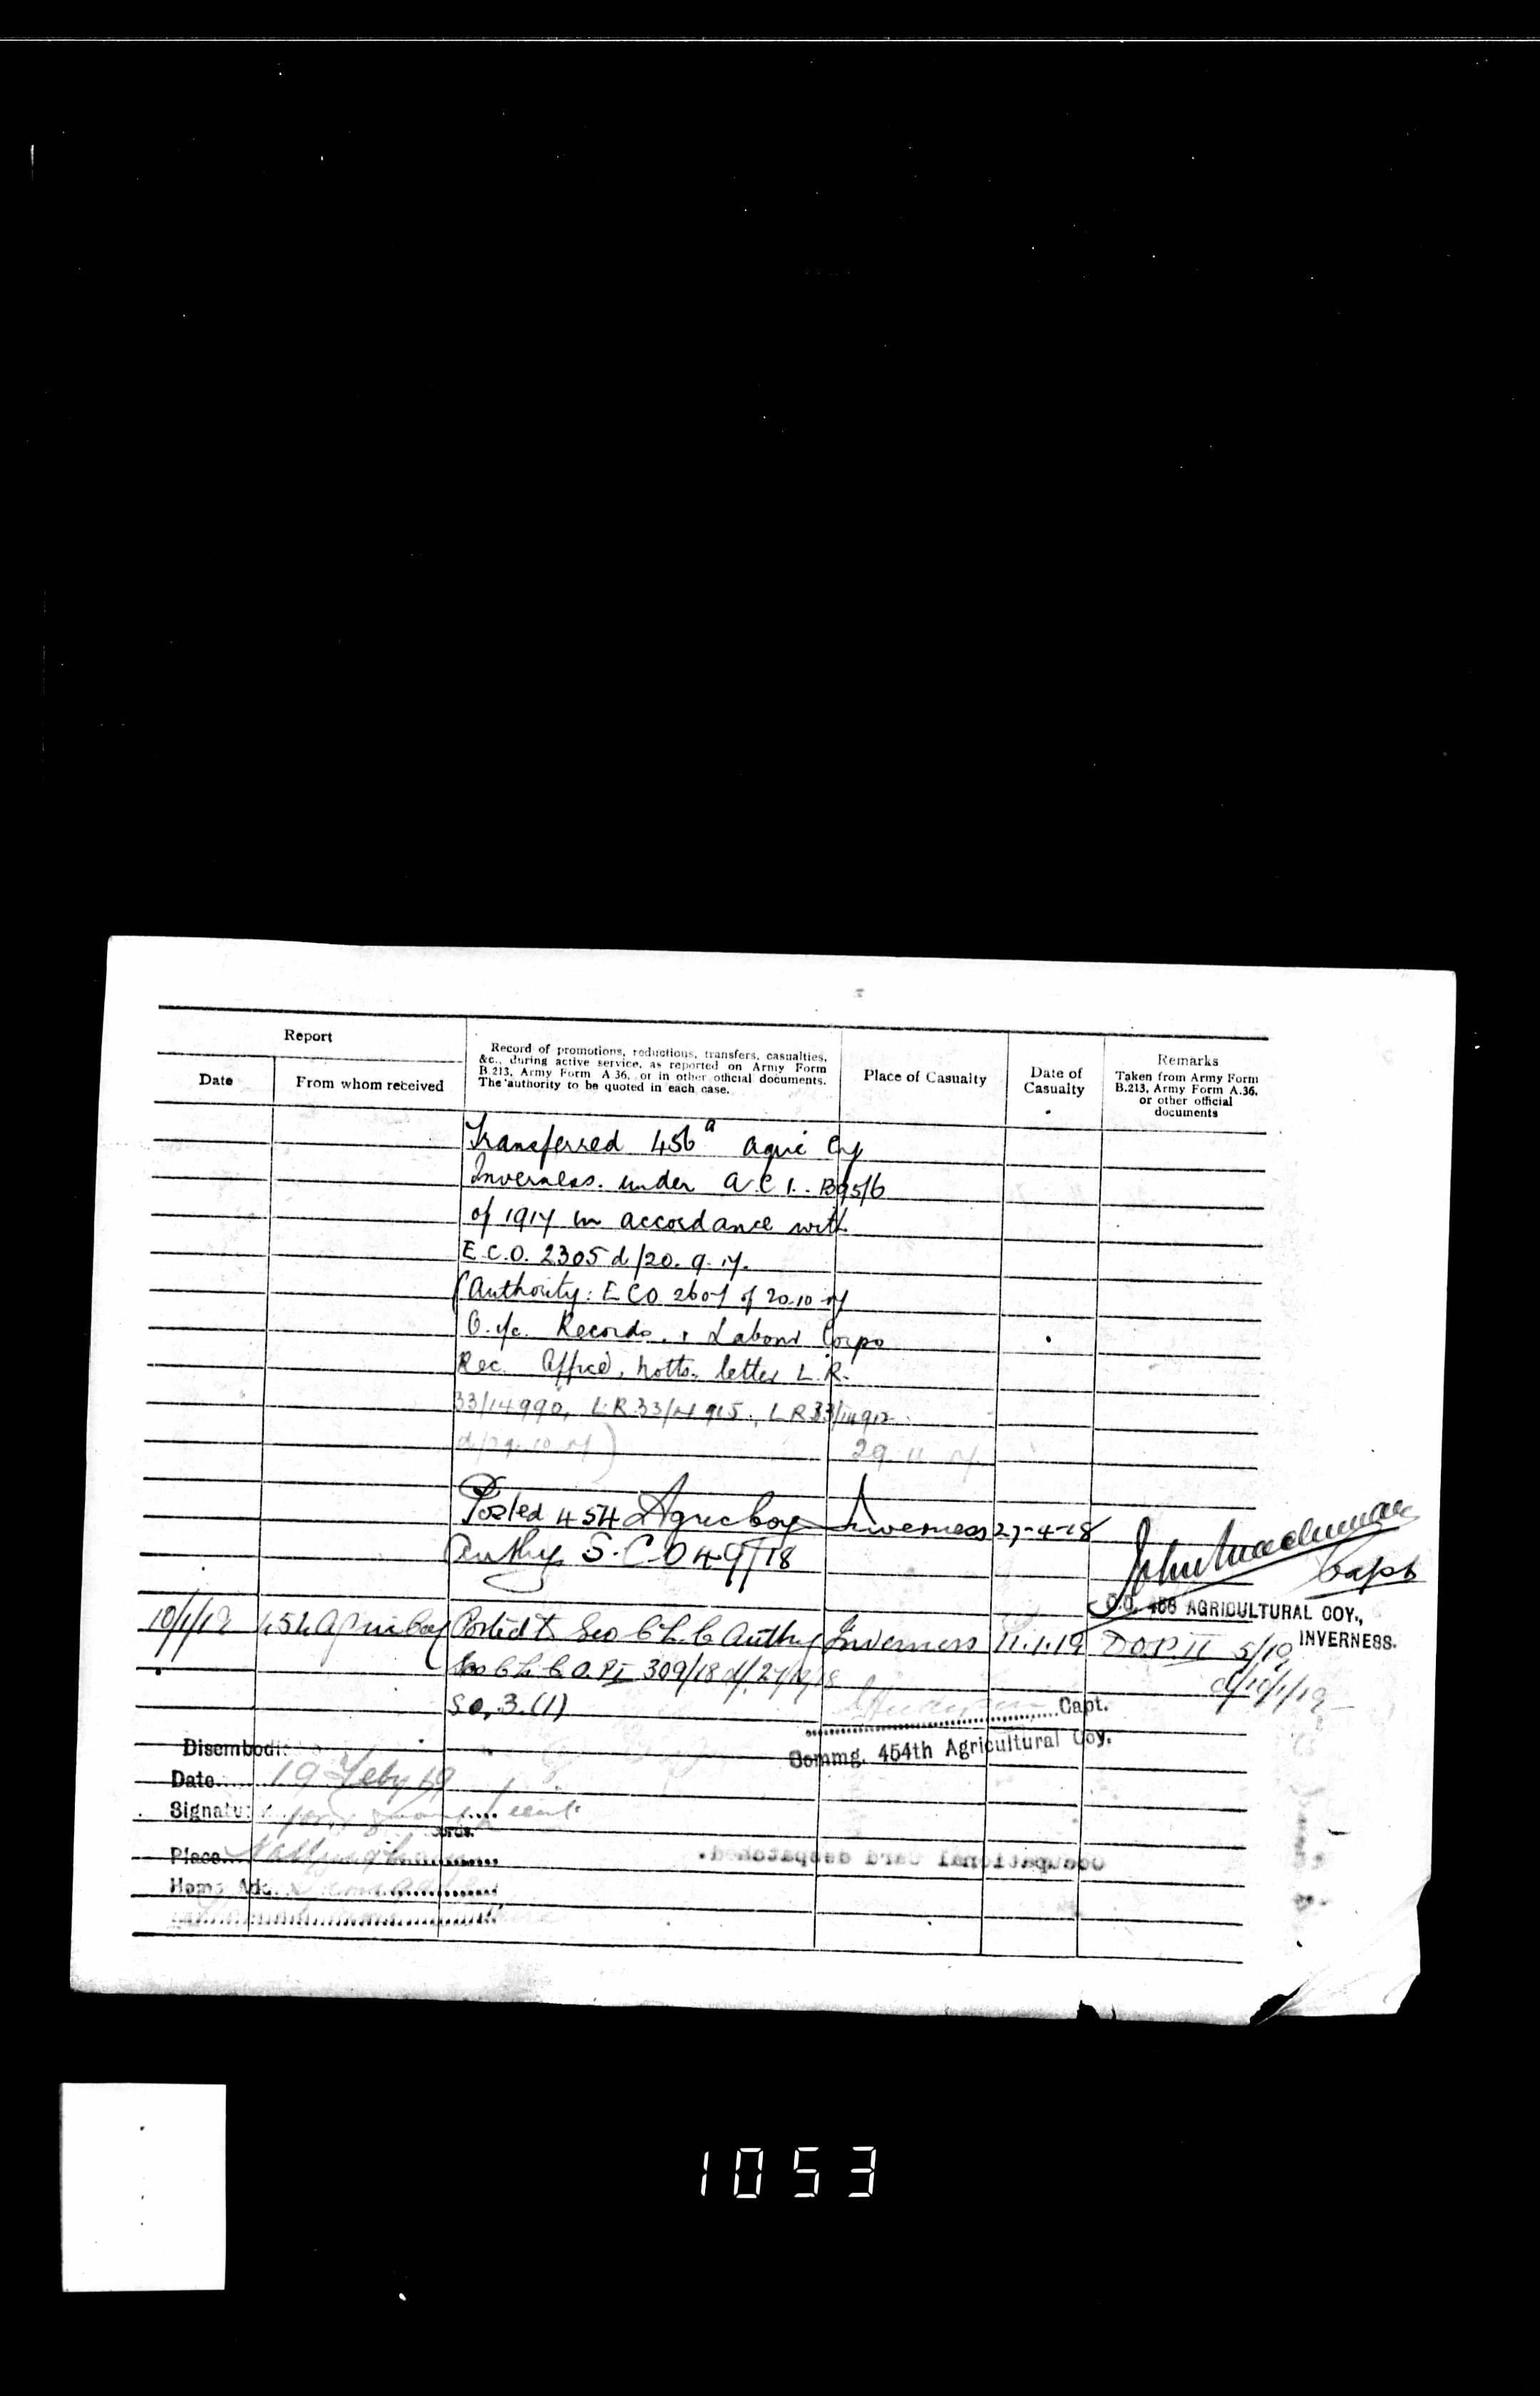 Report
Date
From whom received
Record of promotions, reductions, transfers, casualties,
&c., during active service, as reported on Army Form
B.213, Army Form A.36, or in other official documents.
The authority to be quoted in each case.
Place of Casualty
Date of
Casualty
Remarks
Taken from Army Form
B.213, Army Form A.36,
or other official
documents
Transferred 456 Agric Coy
Inverness. under A.C.I. 
of 1917 in accordance with
E.C.O. 2305 d/20.9.17.
(Authority: ECO 2607 of 20.10.17
O. i/c. Records, Labour Corps
Rec. Office, Notts. letter L.R.
33/14990, L.R.33/14915, L.R.33/14912
d/29.10.17) 29.11.17
Posted 454 Agric Coy Inverness 27-4-18
Authy S.C.O 49/18
Capt
O.C. 456 AGRICULTURAL COY.,
INVERNESS.
10/1/19 454 Agric Coy Posted to Authy Inverness 11.1.19 D.O.P. II 5/19
309/18 d/27/12/18 d/10/1/19
S.O.3.(1)
Capt.
Commg. 454th Agricultural Coy.
Disembodi
Date 19 Feby 19
Signatu
Place
Home Add.
Occupational Card despatched.
1053